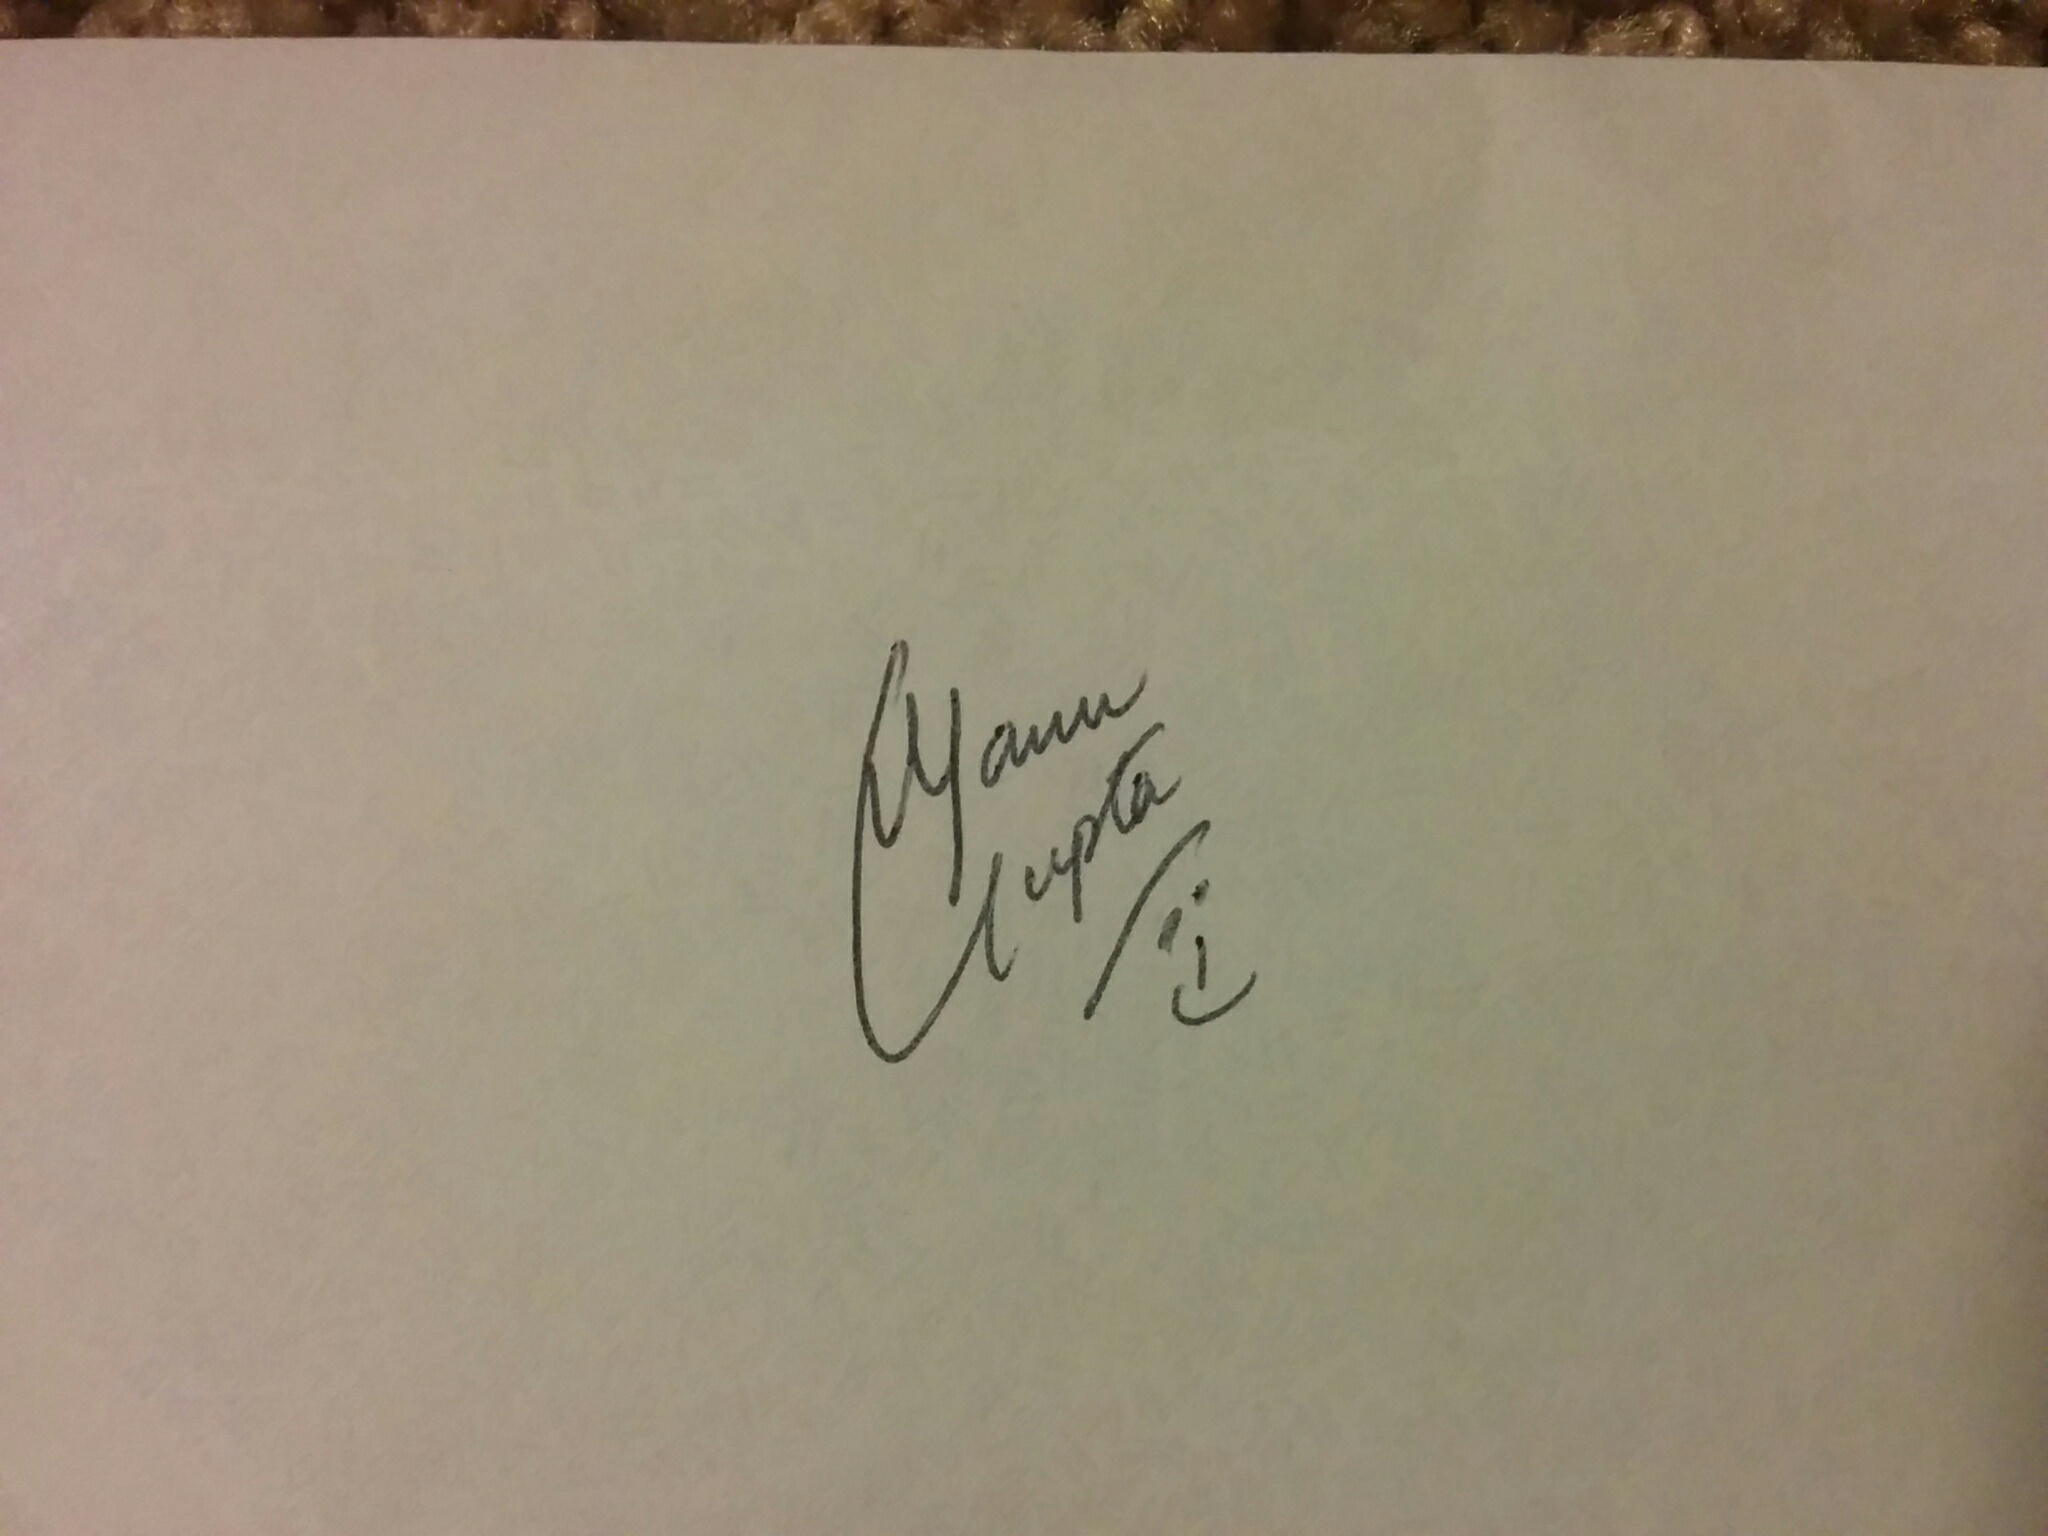 Manu
Gupta